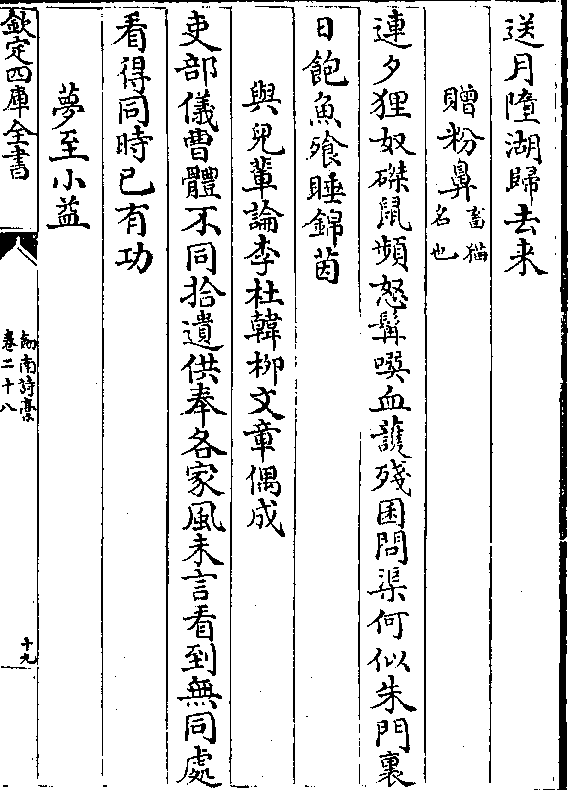 送月墮湖歸去来
贈粉鼻畜猫名也
連夕狸奴磔鼠頻怒髯噀血護殘囷問渠何似朱門裏
日飽魚飱睡錦茵
與兒輩論李杜韓栁文章偶成
吏部儀曹體不同拾遺供奉各家風未言看到無同處
看得同時已有功
夢至小益
欽定四庫全書
劔南詩藁
卷二十八
十九